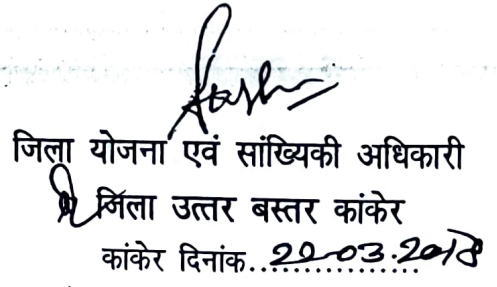 जिला योजना एवं सांख्यिकी अधिकारी
जिला उत्तर बस्तर कांकेर
कांकेर दिनांक..22-03-2018